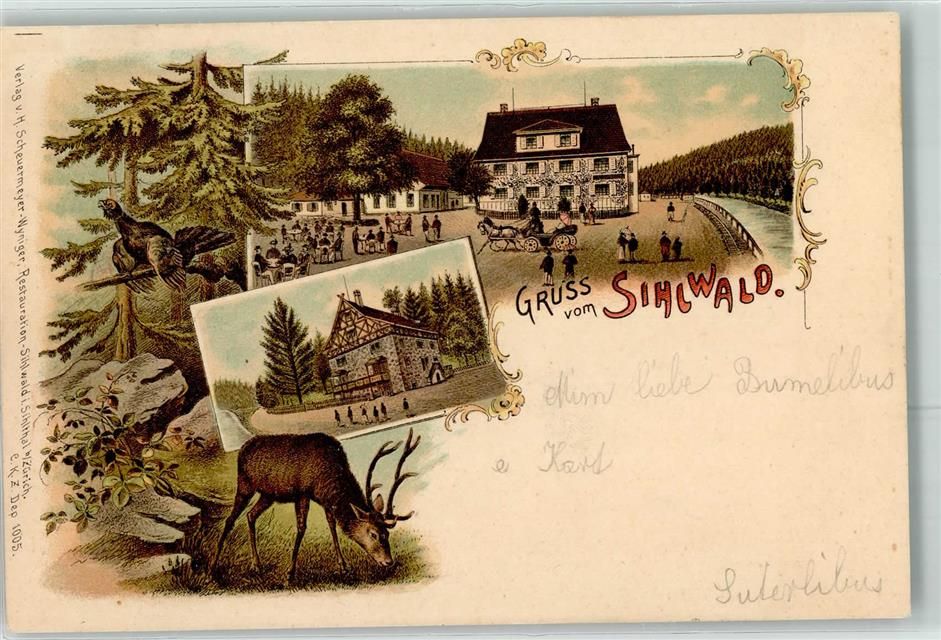 Verlag v. H. Scheuermeyer-Wyniger, Restauration-Sihlwald i. Sihlthal b/Zürich.
C. K. Z. Dep 1005.
GRUSS vom SIHLWALD.
Mim liebe Bumelibus
e Kart
Suterlibus